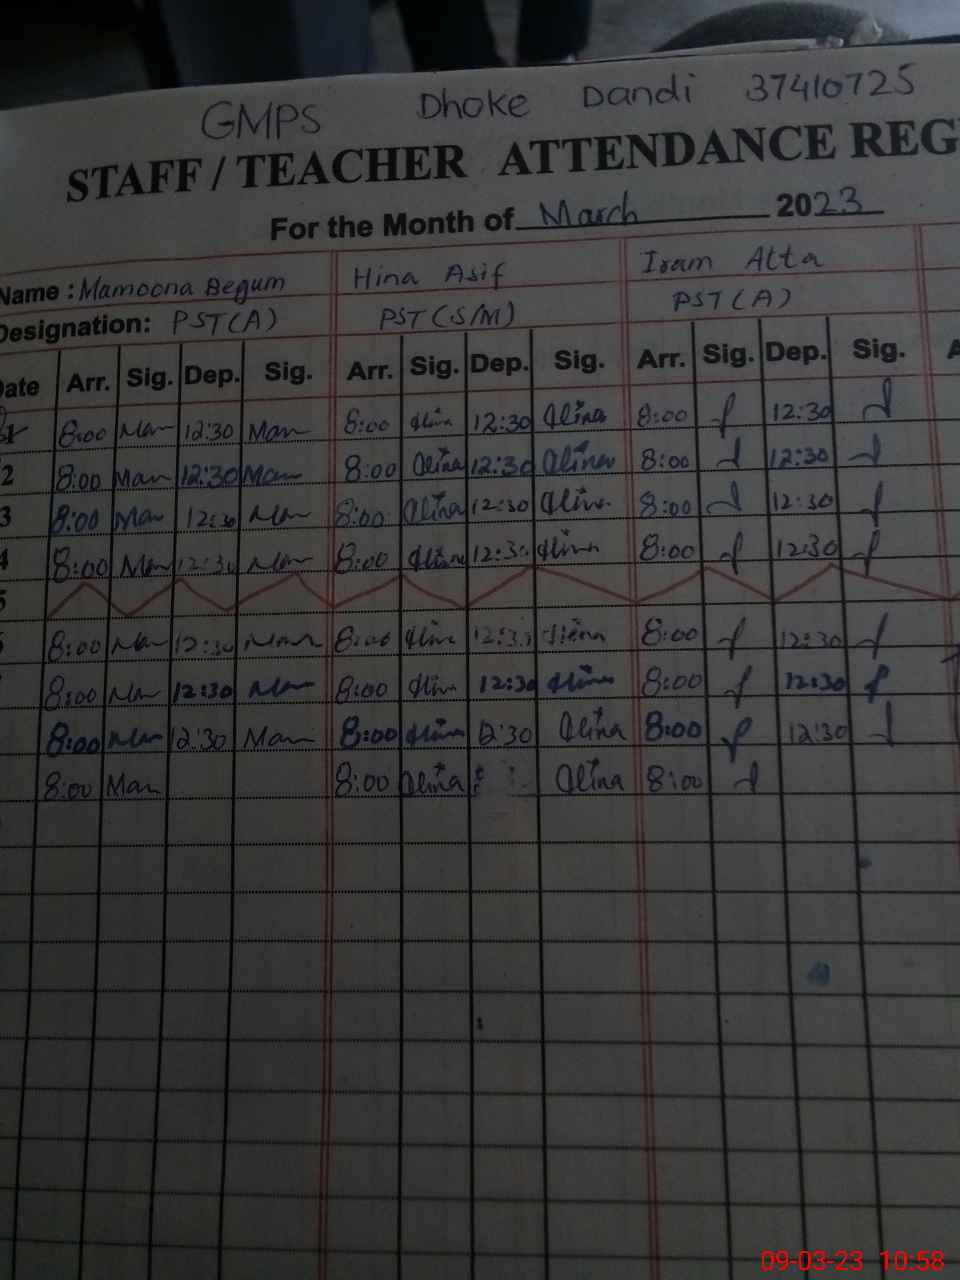 GMPS Dhoke Dandi 37410725
STAFF / TEACHER ATTENDANCE REG
For the Month of March 2023
Name : Mamoona Begum Hina Asif Iram Atta
Designation: PST(A) PST(S/M) PST(A)
Date Arr. Sig. Dep. Sig. Arr. Sig. Dep. Sig. Arr. Sig. Dep. Sig. A
1 8:00 Mam 12:30 Mam 8:00 Hina 12:30 Hina 8:00 12:30
2 8:00 Mam 12:30 Mam 8:00 Hina 12:30 Hina 8:00 12:30
3 8:00 Mam 12:30 Mam 8:00 Hina 12:30 Hina 8:00 12:30
4 8:00 Mam 12:30 Mam 8:00 Hina 12:30 Hina 8:00 12:30
5
8:00 Mam 12:30 Mam 8:00 Hina 12:30 Hina 8:00 12:30
8:00 Mam 12:30 Mam 8:00 Hina 12:30 Hina 8:00 12:30
8:00 Mam 12:30 Mam 8:00 Hina 12:30 Hina 8:00 12:30
8:00 Mam 8:00 Hina Hina 8:00
09-03-23 10:58